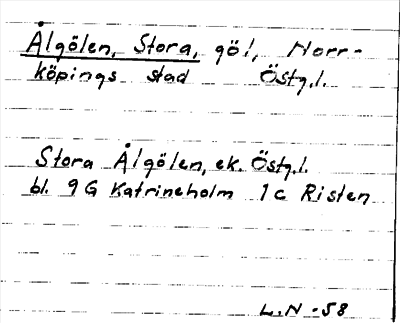 Ålgölen, Stora, göl, Norr-
köpings stad Östg.l.
Stora Ålgölen, ek. Östg.l.
bl. 9G Katrineholm 1c Risten
L.N -58